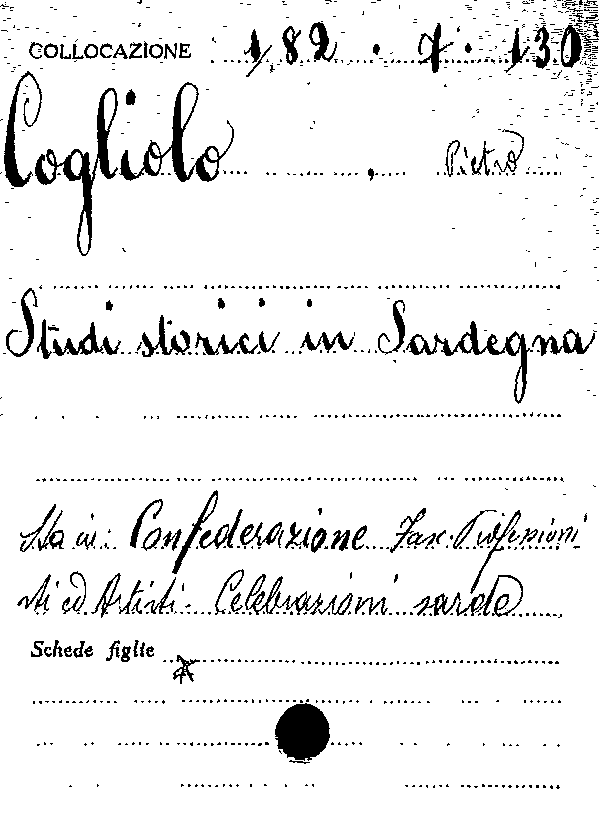 COLLOCAZIONE 182 . 7 . 130
Cogliolo , Pietro
Studi storici in Sardegna
Sta in: Confederazione Fasc. Professioni-
sti ed Artisti. Celebrazioni sarde
Schede figlie